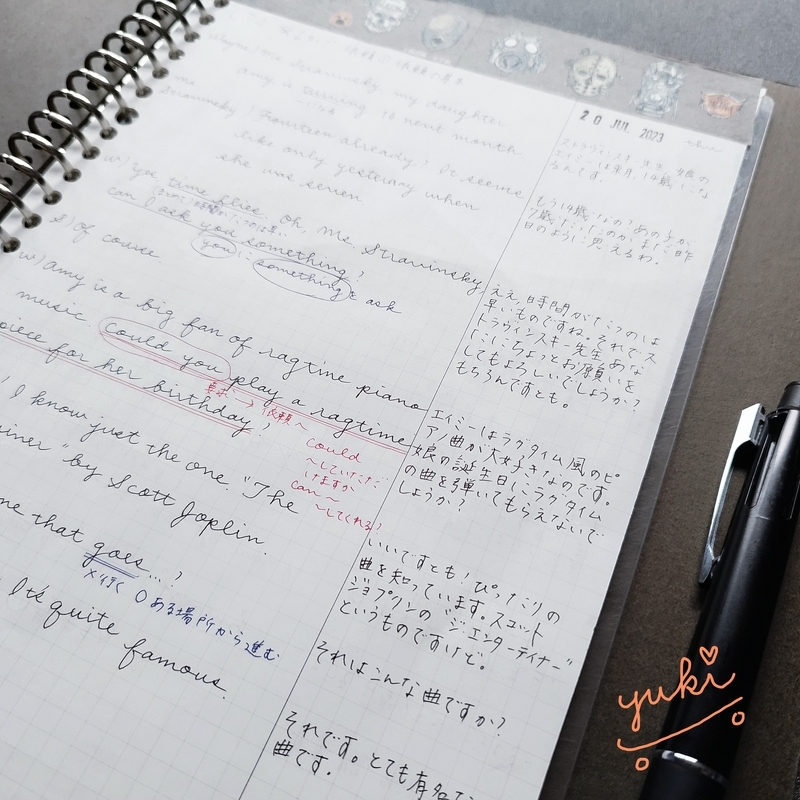 Stravinsky, my daughter
Amy is turning 14 next month
Stravinsky) Fourteen already! It seems
like only yesterday when
she was seven
w) yes, time flies. oh, Ms. Stravinsky,
can I ask you something?
you に something を ask
s) of course
w) Amy is a big fan of ragtime piano
music. Could you play a ragtime
piece for her birthday?
依頼へ
could
〜していただ
けますか
can〜
〜してくれる?
I know just the one. "The
by Scott Joplin.
one that goes...?
×行く ○ある場所から進む
It's quite famous.
20 JUL 2023
ストラヴィンスキー先生、娘の
エイミーは来月、14歳にな
るんです。
もう14歳なの?あの子が
7歳だったのが、まだ昨
日のように思えるわ。
ええ、時間がたつのは
早いものですね。それでス
トラヴィンスキー先生、あな
たにちょっとお願いを
してもよろしいでしょうか?
もちろんですとも。
エイミーはラグタイム風のピ
アノ曲が大好きなのです。
娘の誕生日にラグタイム
の曲を弾いてもらえないで
しょうか?
いいですとも!ぴったりの
曲を知っています。スコット
ジョプリンの"ジ・エンターテイナー"
というものですけど。
それはこんな曲ですか?
それです。とても有名な
曲です。
yuki